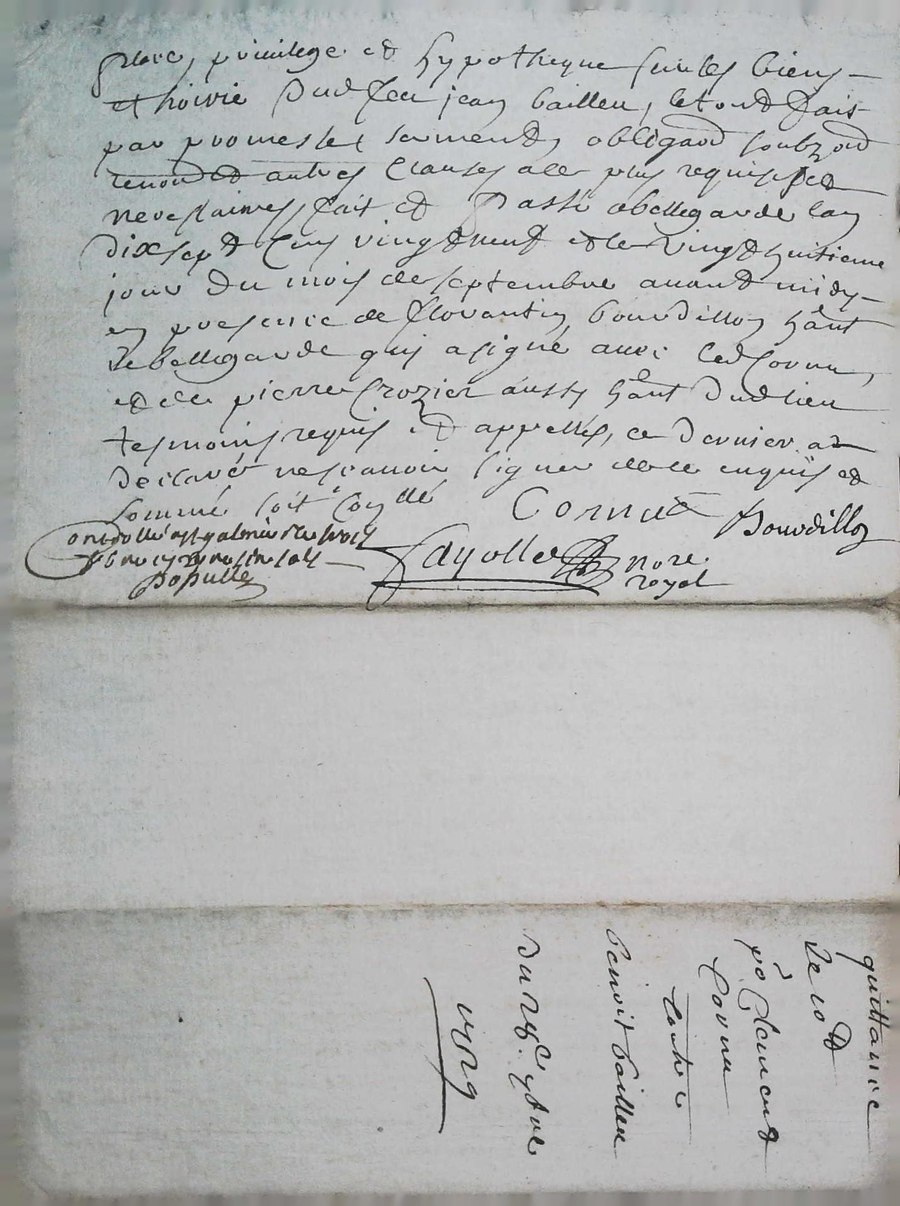 place, privilege et hypotheque sur les biens
et hoirie dud feu jean bailleu, le tout fait
par promesses serments obligaon soubzon
renonon et autres clauses a ce plus requises et
necessaires, fait et passé a bellegarde lan
dix sept cens vingt neuf et le vingt huitieme
jour du mois de septembre avant midy
en presence de florantin bourdillon hãnt
de bellegarde qui a signé avec led Cornu,
et de pierre Crozier aussy hãnt dud lieu
tesmoins requis et appellés, ce dernier a
declaré ne scavoir signer de ce enquis et
sommé soit conllé
Cornu
Bourdillon
Controllé a st galmier
Papulle
Fayolle nore
royal
quittance
de 10 tt
po Clement
Cornu
Contre
benoit bailleu
du 28e 7bre
1729